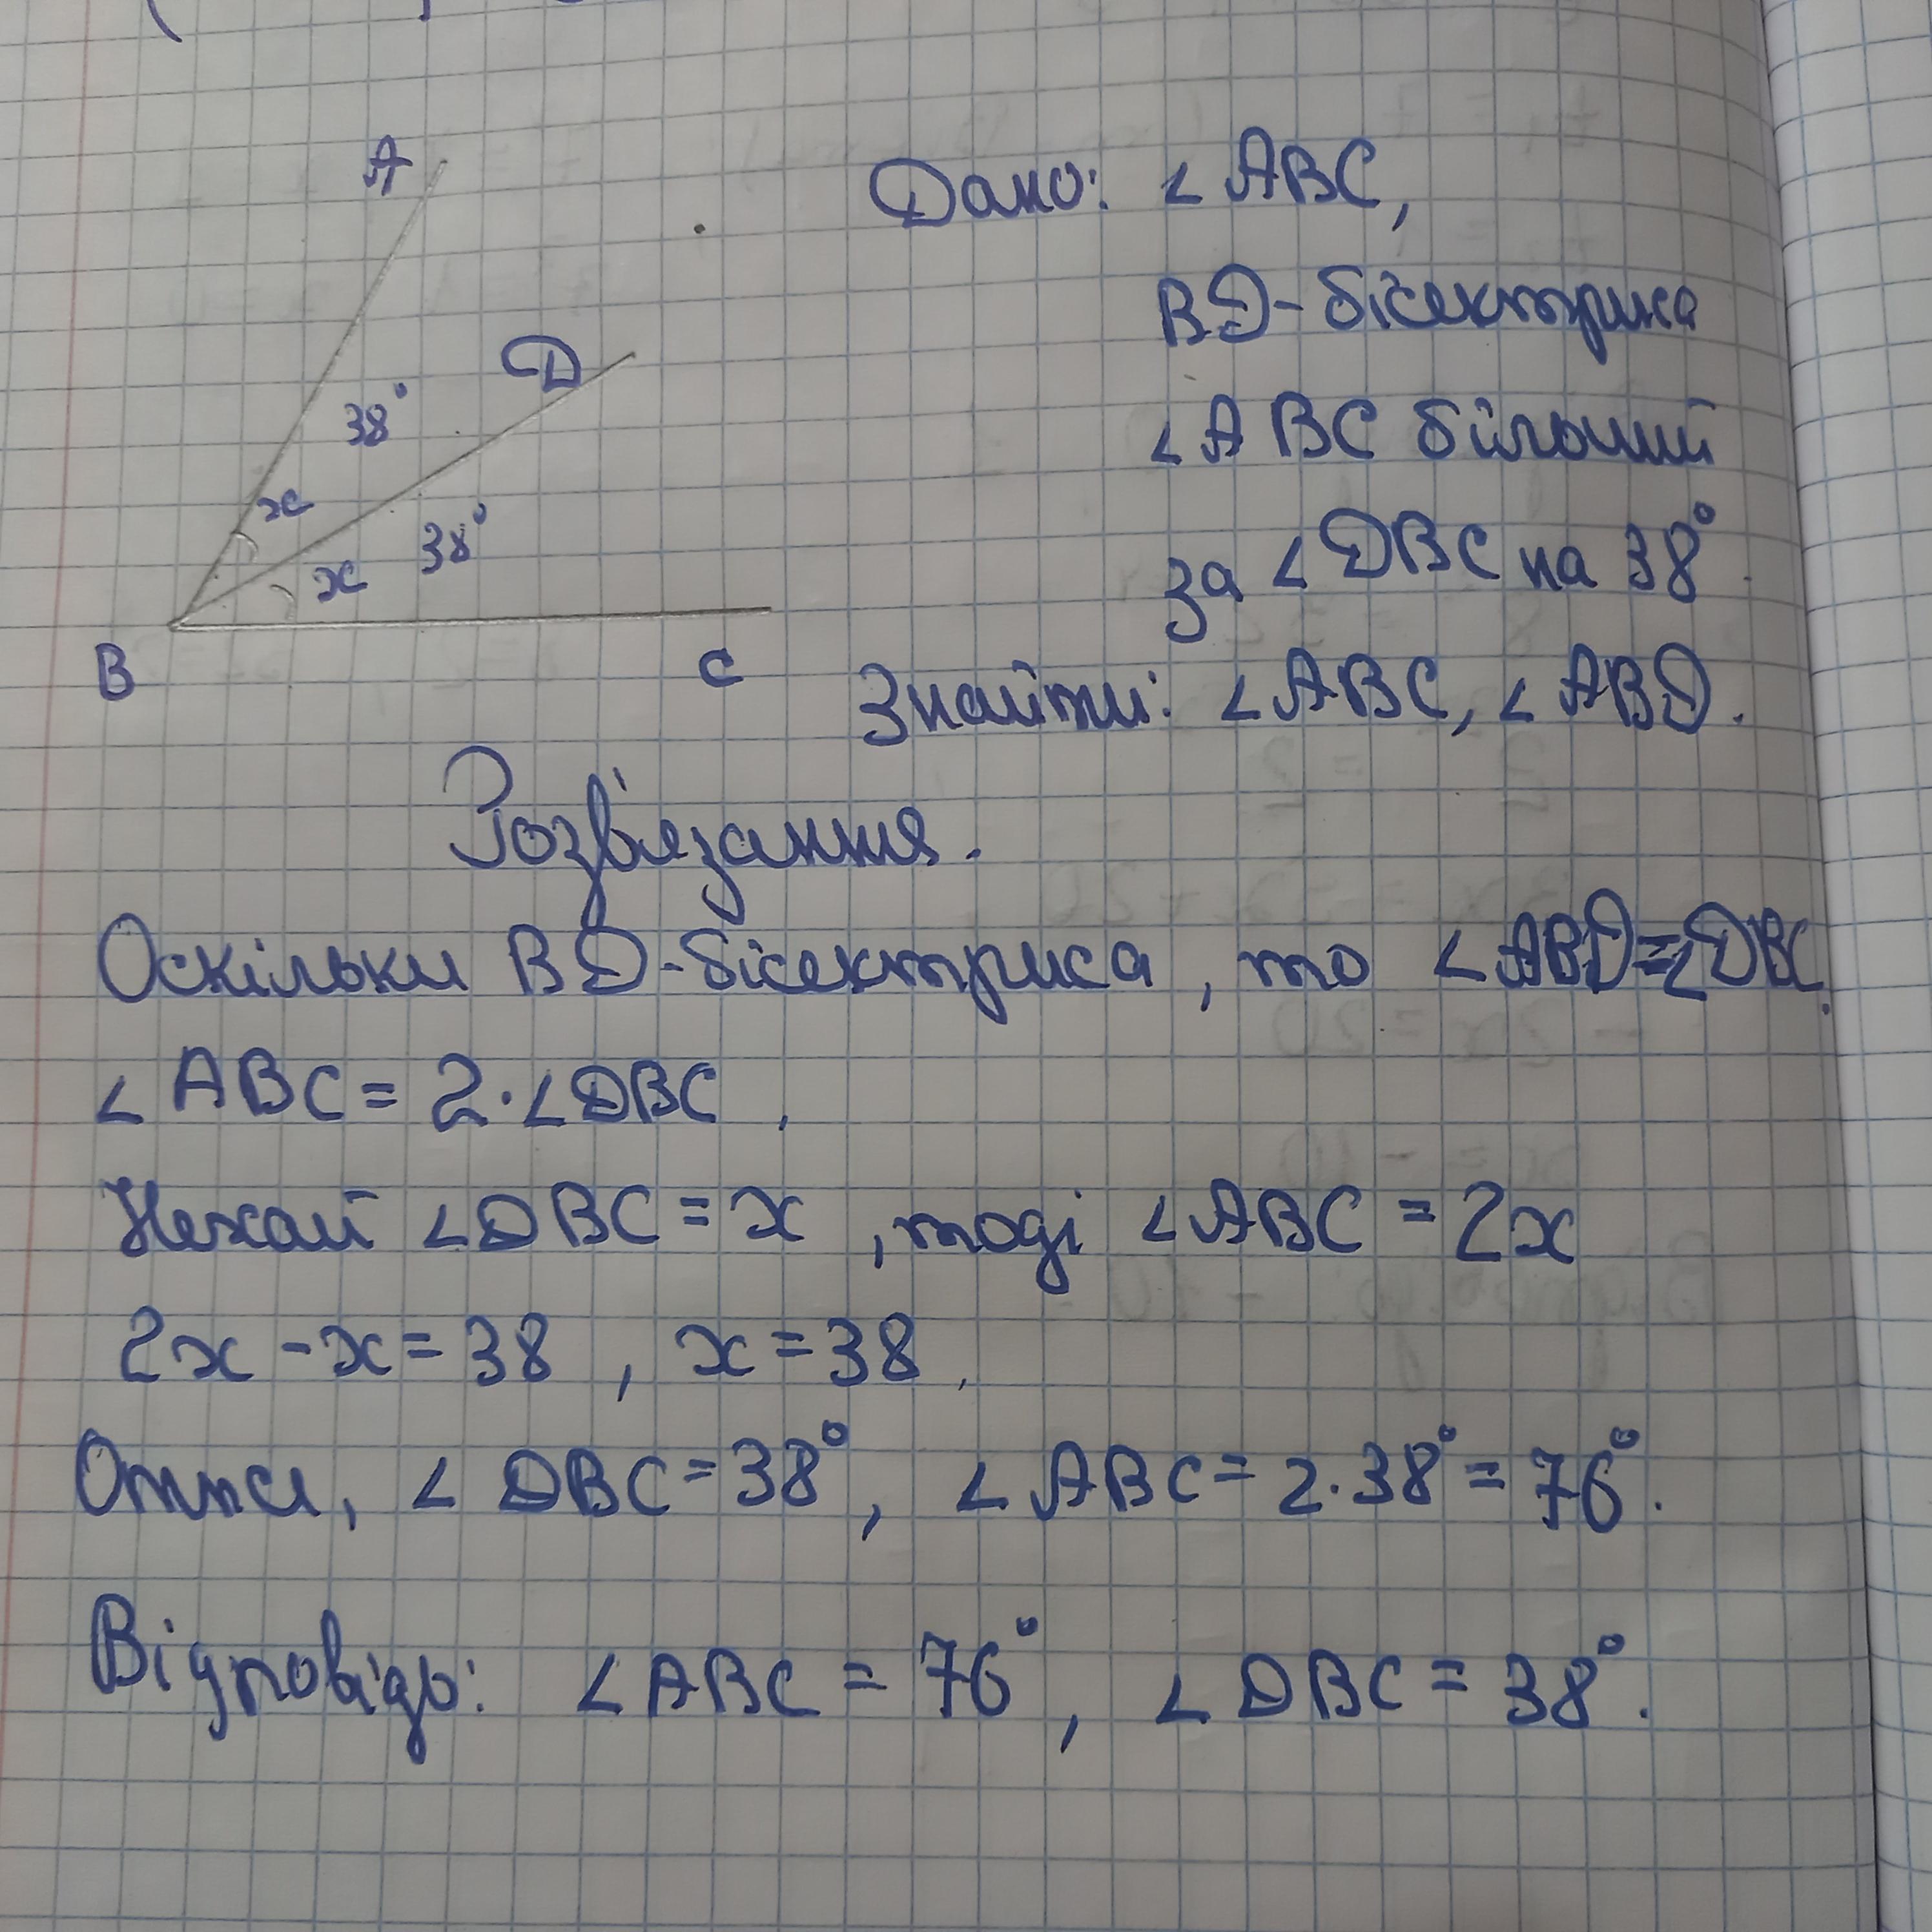 A
D
38°
x
38°
x
B
C
Дано: ∠ABC,
BD-бісектриса
∠ABC більший
за ∠DBC на 38°
Знайти: ∠ABC, ∠ABD.
Розв'язання.
Оскільки BD-бісектриса, то ∠ABD=∠DBC.
∠ABC = 2·∠DBC,
Нехай ∠DBC = x, тоді ∠ABC = 2x
2x - x = 38, x = 38.
Отже, ∠DBC = 38°, ∠ABC = 2·38° = 76°.
Відповідь: ∠ABC = 76°, ∠DBC = 38°.